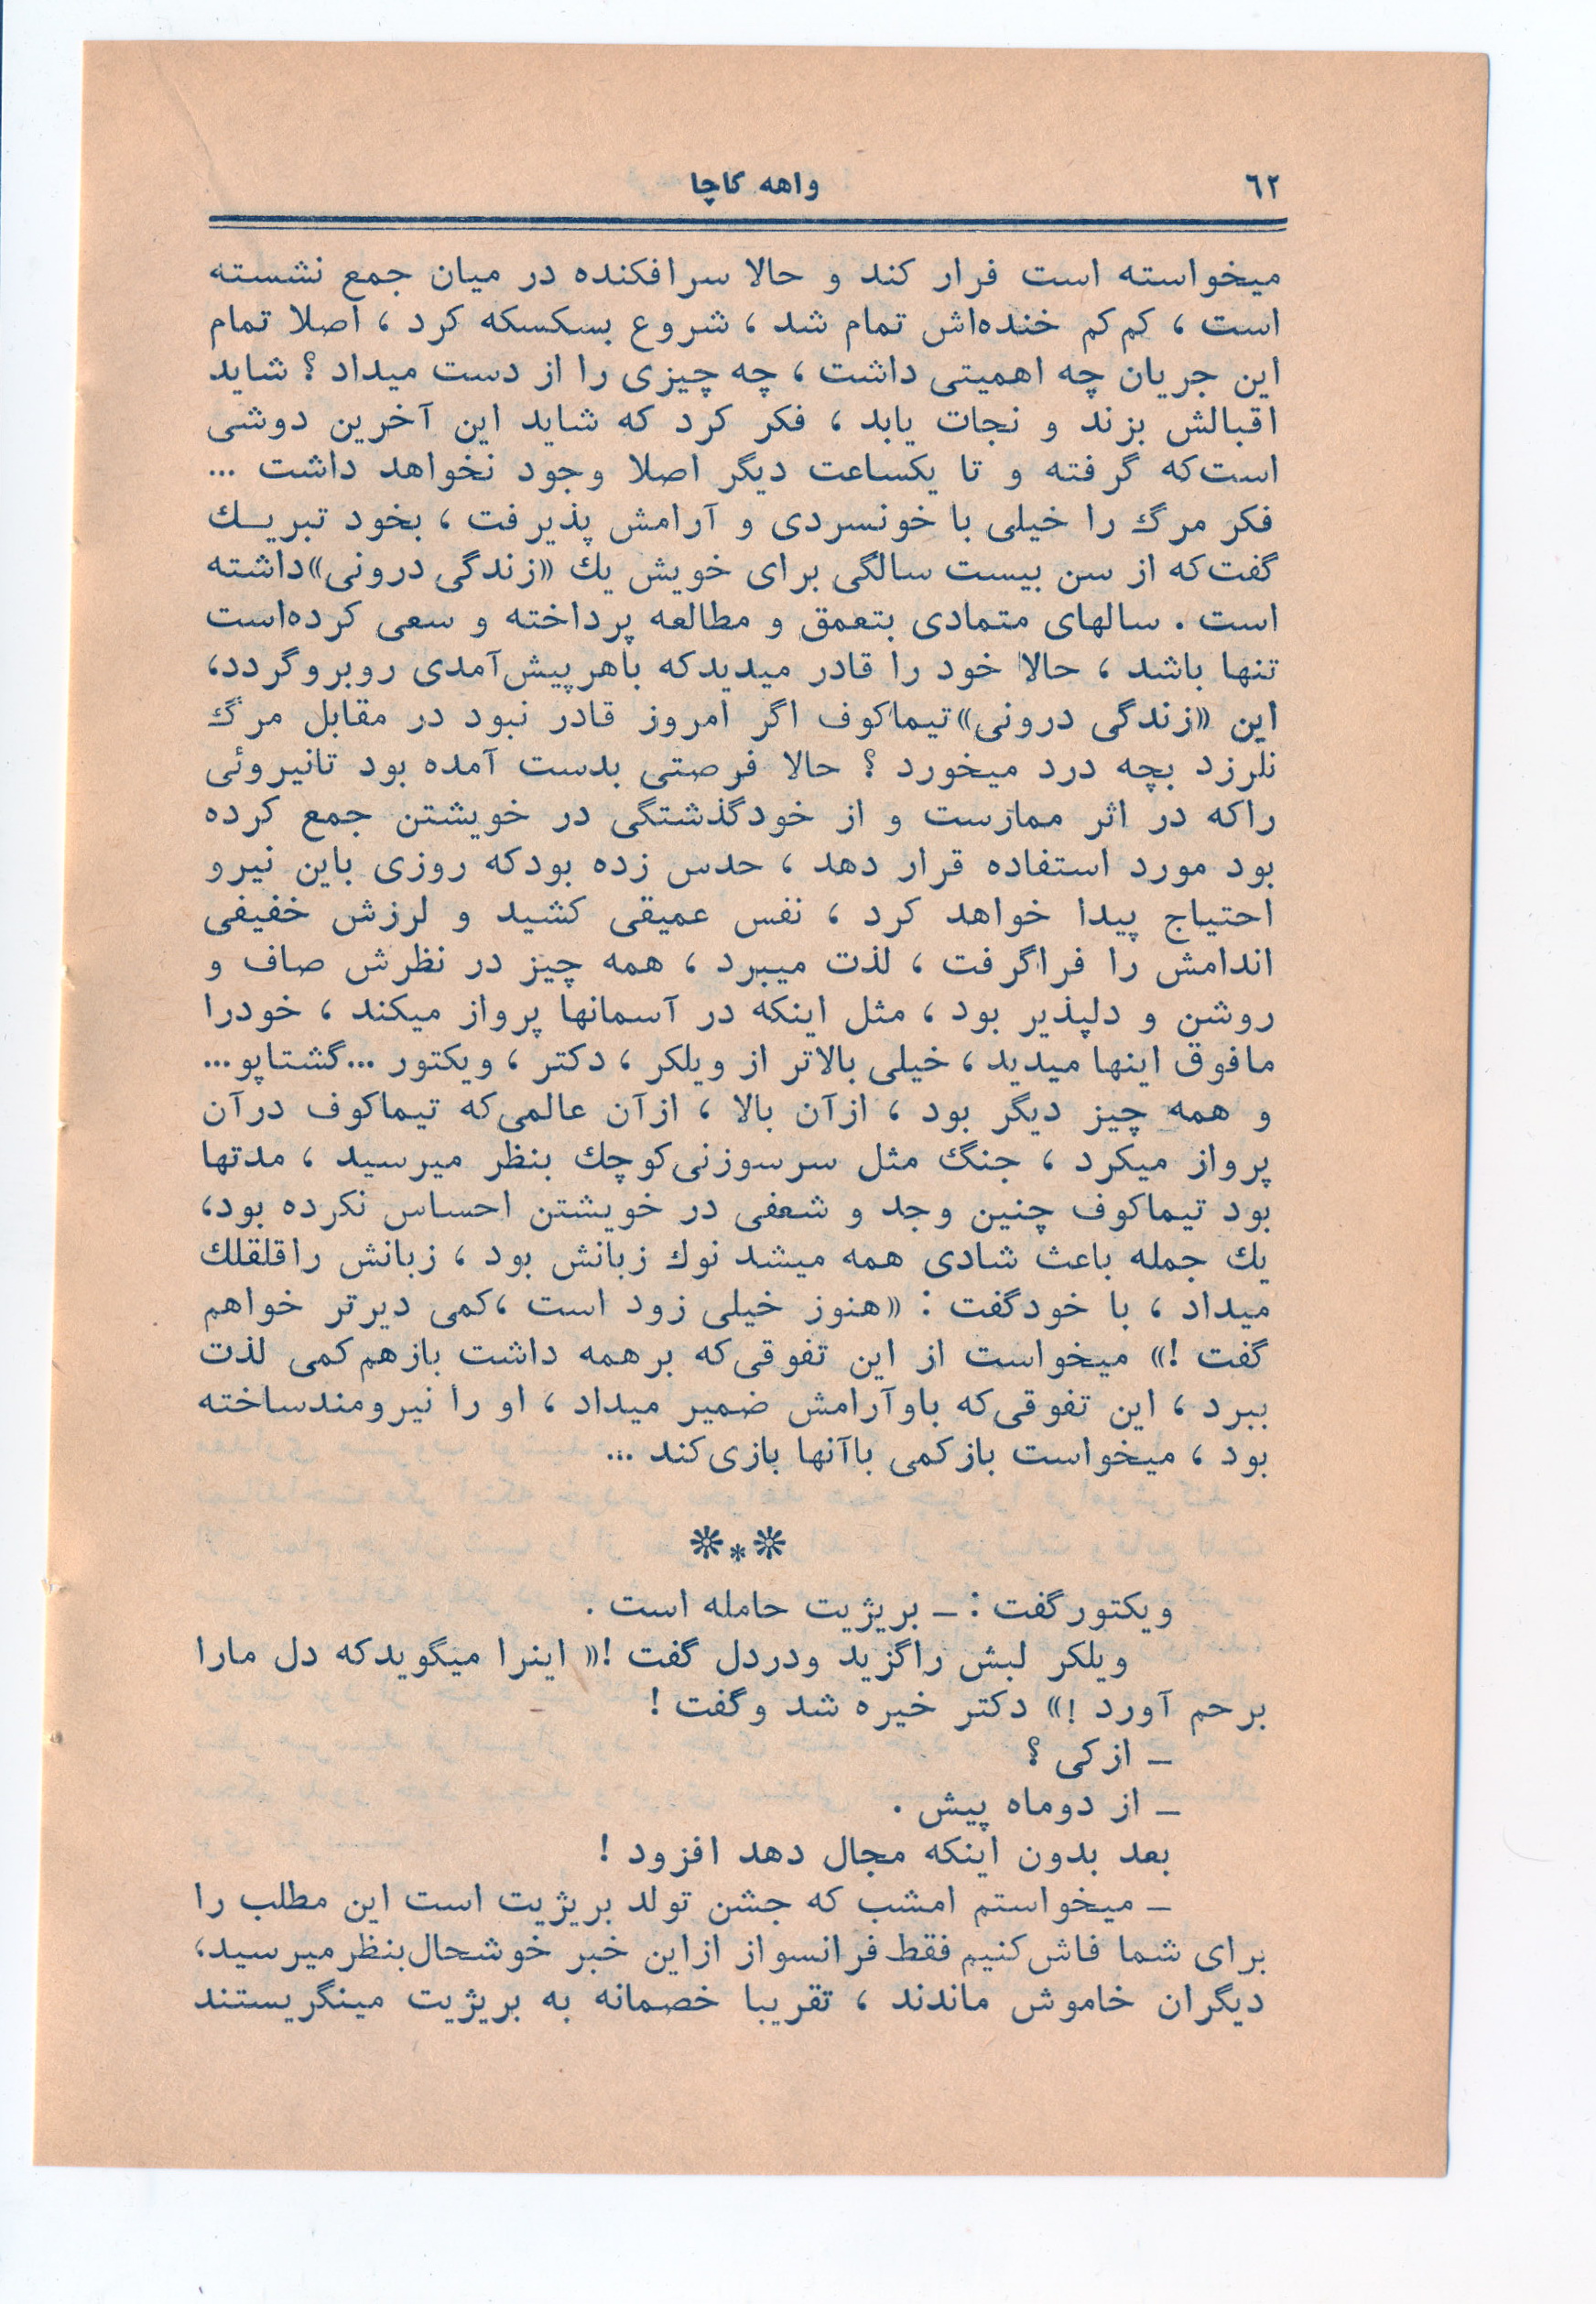 ٦٢
واهه کاچا
میخواسته است فرار کند و حالا سرافکنده در میان جمع نشسته
است ، کم‌کم خنده‌اش تمام شد ، شروع بسکسکه کرد ، اصلا تمام
این جریان چه اهمیتی داشت ، چه چیزی را از دست میداد ؟ شاید
اقبالش بزند و نجات یابد ، فکر کرد که شاید این آخرین دوشی
است‌که گرفته و تا یکساعت دیگر اصلا وجود نخواهد داشت ...
فکر مرگ را خیلی با خونسردی و آرامش پذیرفت ، بخود تبریـك
گفت‌که از سن بیست سالگی برای خویش یك «زندگی درونی»داشته
است . سالهای متمادی بتعمق و مطالعه پرداخته و سعی کرده‌است
تنها باشد ، حالا خود را قادر میدیدکه باهرپیش‌آمدی روبروگردد،
این «زندگی درونی»تیماکوف اگر امروز قادر نبود در مقابل مرگ
نلرزد بچه درد میخورد ؟ حالا فرصتی بدست آمده بود تانیروئی
راکه در اثر ممارست و از خودگذشتگی در خویشتن جمع کرده
بود مورد استفاده قرار دهد ، حدس زده بودکه روزی باین نیرو
احتیاج پیدا خواهد کرد ، نفس عمیقی کشید و لرزش خفیفی
اندامش را فراگرفت ، لذت میبرد ، همه چیز در نظرش صاف و
روشن و دلپذیر بود ، مثل اینکه در آسمانها پرواز میکند ، خودرا
مافوق اینها میدید ، خیلی بالاتر از ویلکر ، دکتر ، ویکتور ...گشتاپو...
و همه چیز دیگر بود ، ازآن بالا ، ازآن عالمی‌که تیماکوف درآن
پرواز میکرد ، جنگ مثل سرسوزنی‌کوچك بنظر میرسید ، مدتها
بود تیماکوف چنین وجد و شعفی در خویشتن احساس نکرده بود،
یك جمله باعث شادی همه میشد نوك زبانش بود ، زبانش راقلقلك
میداد ، با خودگفت : «هنوز خیلی زود است ،کمی دیرتر خواهم
گفت !» میخواست از این تفوقی‌که برهمه داشت بازهم‌کمی لذت
ببرد ، این تفوقی‌که باوآرامش ضمیر میداد ، او را نیرومندساخته
بود ، میخواست بازکمی باآنها بازی‌کند ...
❊*❊
ویکتورگفت : ـ بریژیت حامله است .
ویلکر لبش راگزید ودردل گفت !« اینرا میگویدکه دل مارا
برحم آورد !» دکتر خیره شد وگفت !
ـ ازکی ؟
ـ از دوماه پیش .
بعد بدون اینکه مجال دهد افزود !
ـ میخواستم امشب که جشن تولد بریژیت است این مطلب را
برای شما فاش‌کنیم فقط فرانسواز ازاین خبر خوشحال‌بنظرمیرسید،
دیگران خاموش ماندند ، تقریبا خصمانه به بریژیت مینگریستند